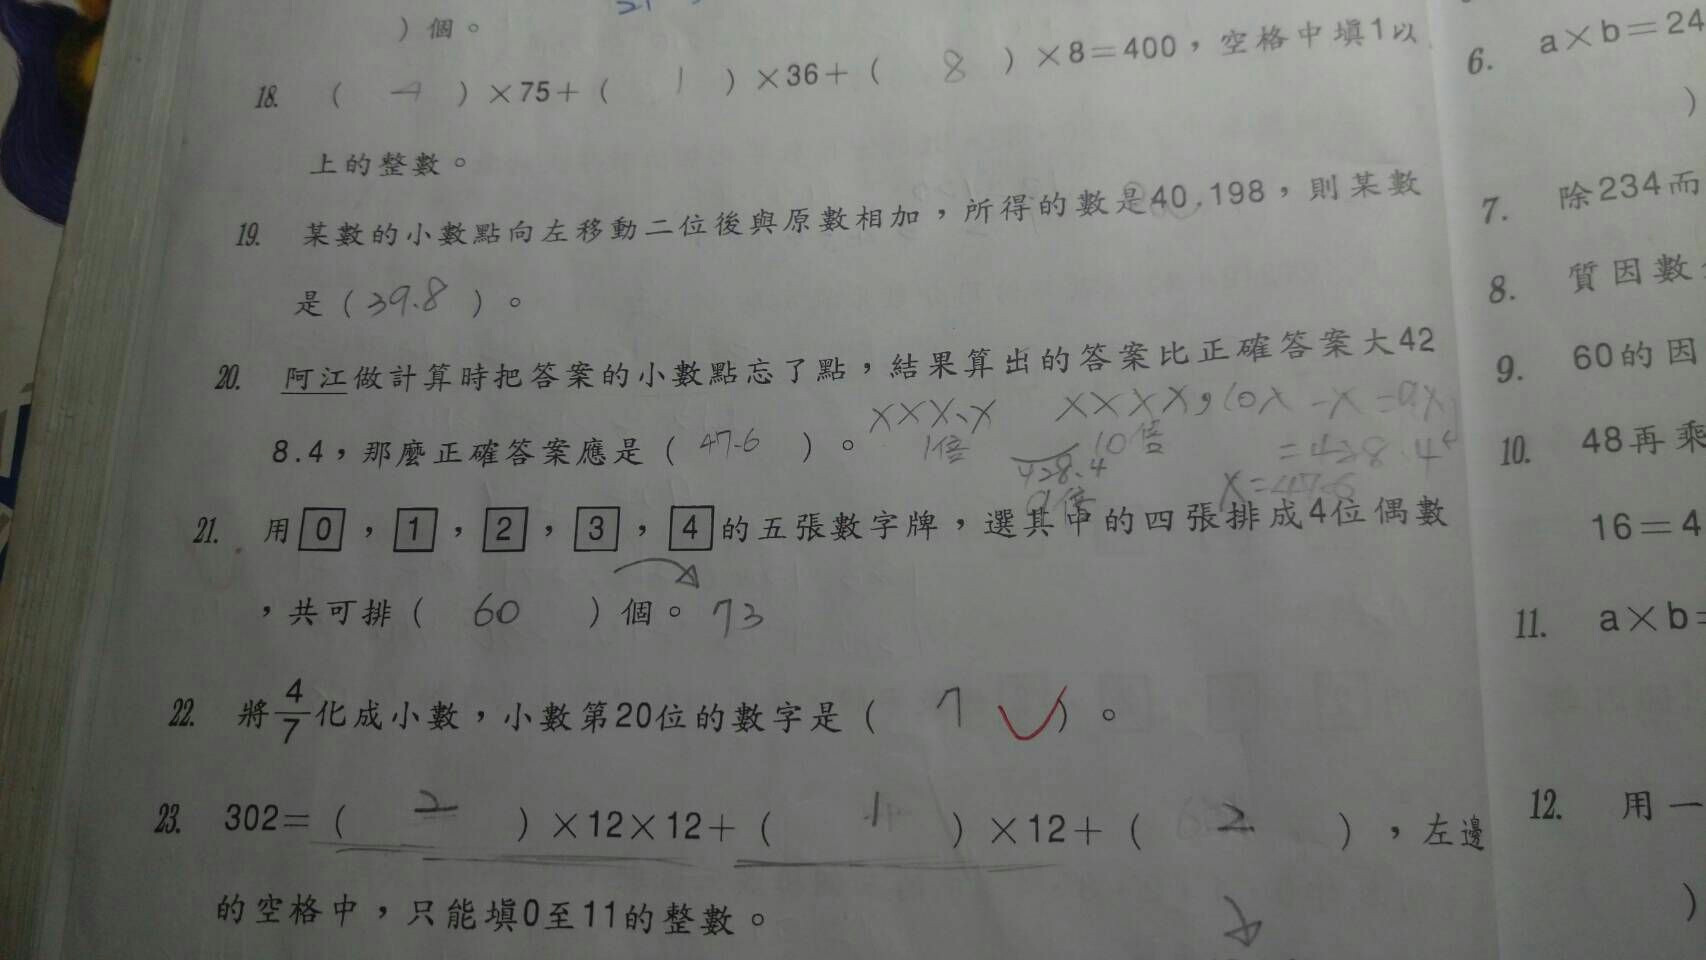 ）個。
18. （ 4 ）×75＋（ 1 ）×36＋（ 8 ）×8＝400，空格中填1以
上的整數。
19. 某數的小數點向左移動二位後與原數相加，所得的數是40.198，則某數
是（39.8）。
20. 阿江做計算時把答案的小數點忘了點，結果算出的答案比正確答案大42
XXX、X XXXX，10X－X＝9X
8.4，那麼正確答案應是（ 47.6 ）。
1倍 10倍 ＝428.4
428.4
9倍 X＝47.6
21. 用0，1，2，3，4的五張數字牌，選其中的四張排成4位偶數
，共可排（ 60 ）個。73
22. 將4/7化成小數，小數第20位的數字是（ 7 ）。
23. 302＝（ 2 ）×12×12＋（ 1 ）×12＋（ 2 ），左邊
的空格中，只能填0至11的整數。
6. a×b＝24
）
7. 除234而
8. 質因數
9. 60的因
10. 48再乘
16＝4
11. a×b＝
12. 用一
）